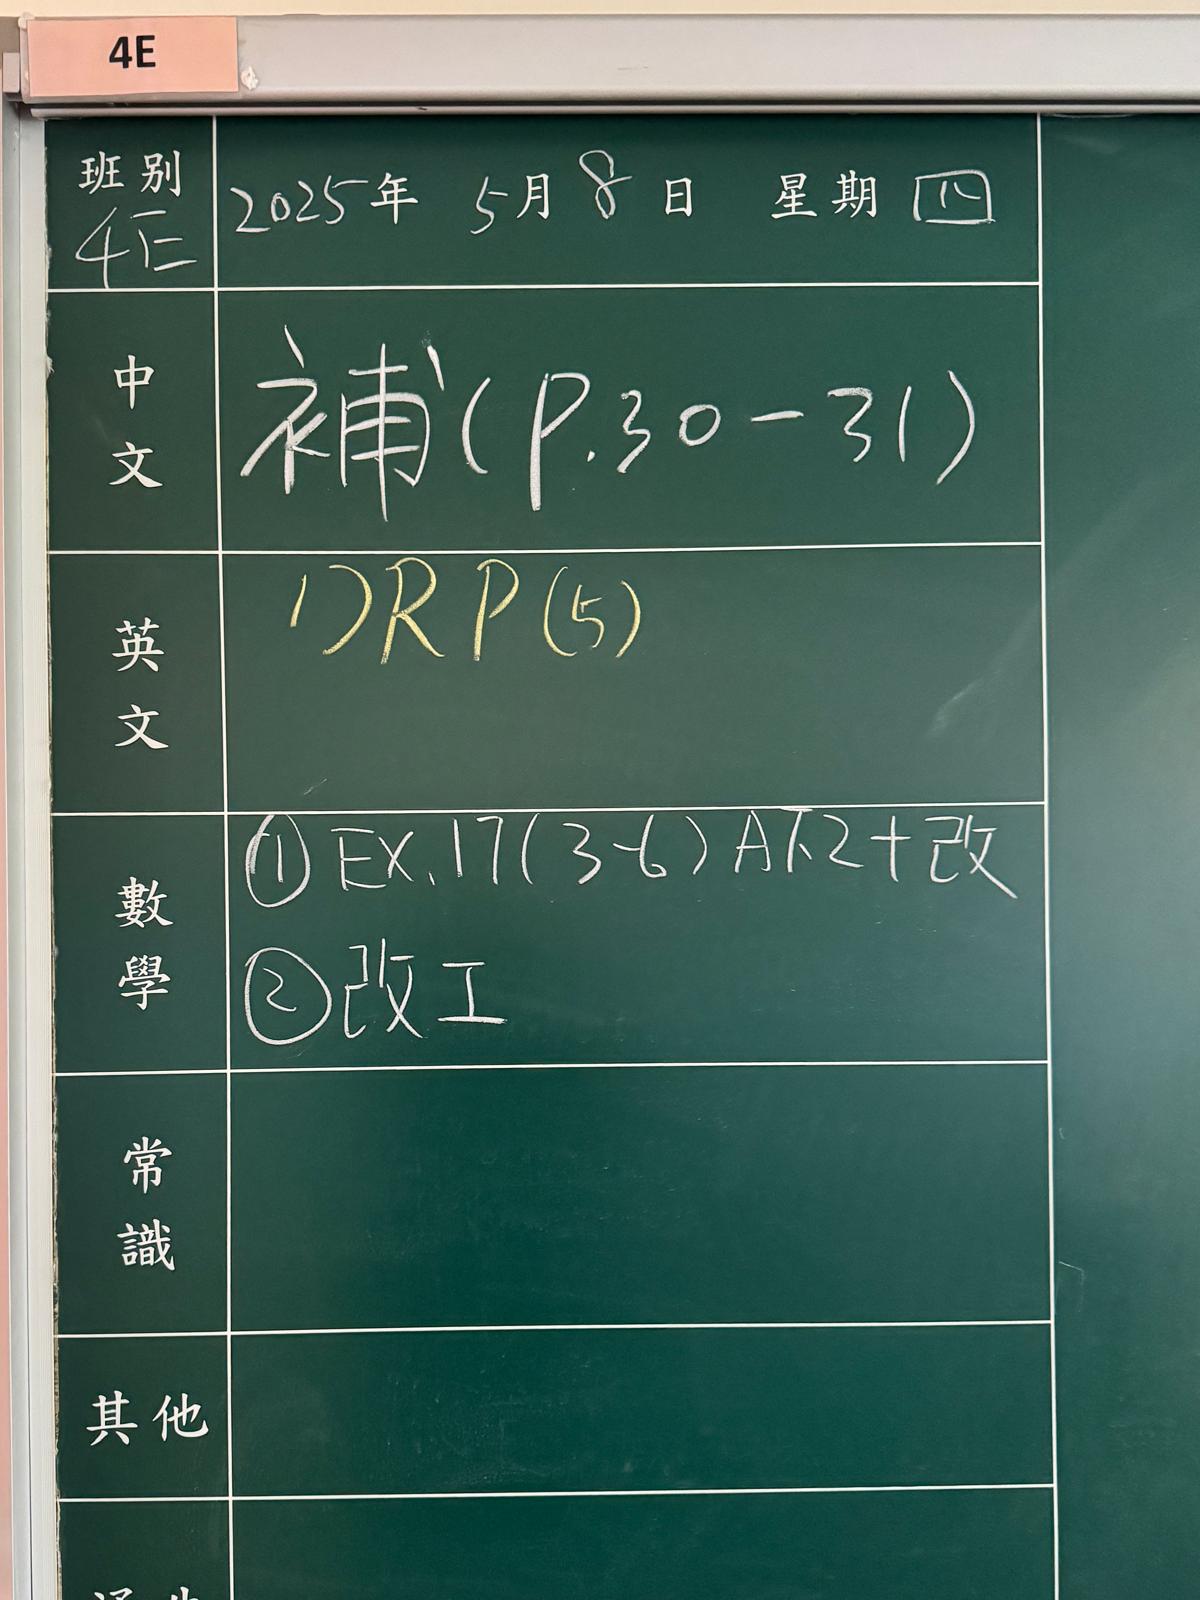 4E
班別 2025年 5月8日 星期四
4E
中文 補(P.30-31)
英文 1)RP(5)
數學 ①EX.17(3-6)A下2+改
②改工
常識
其他